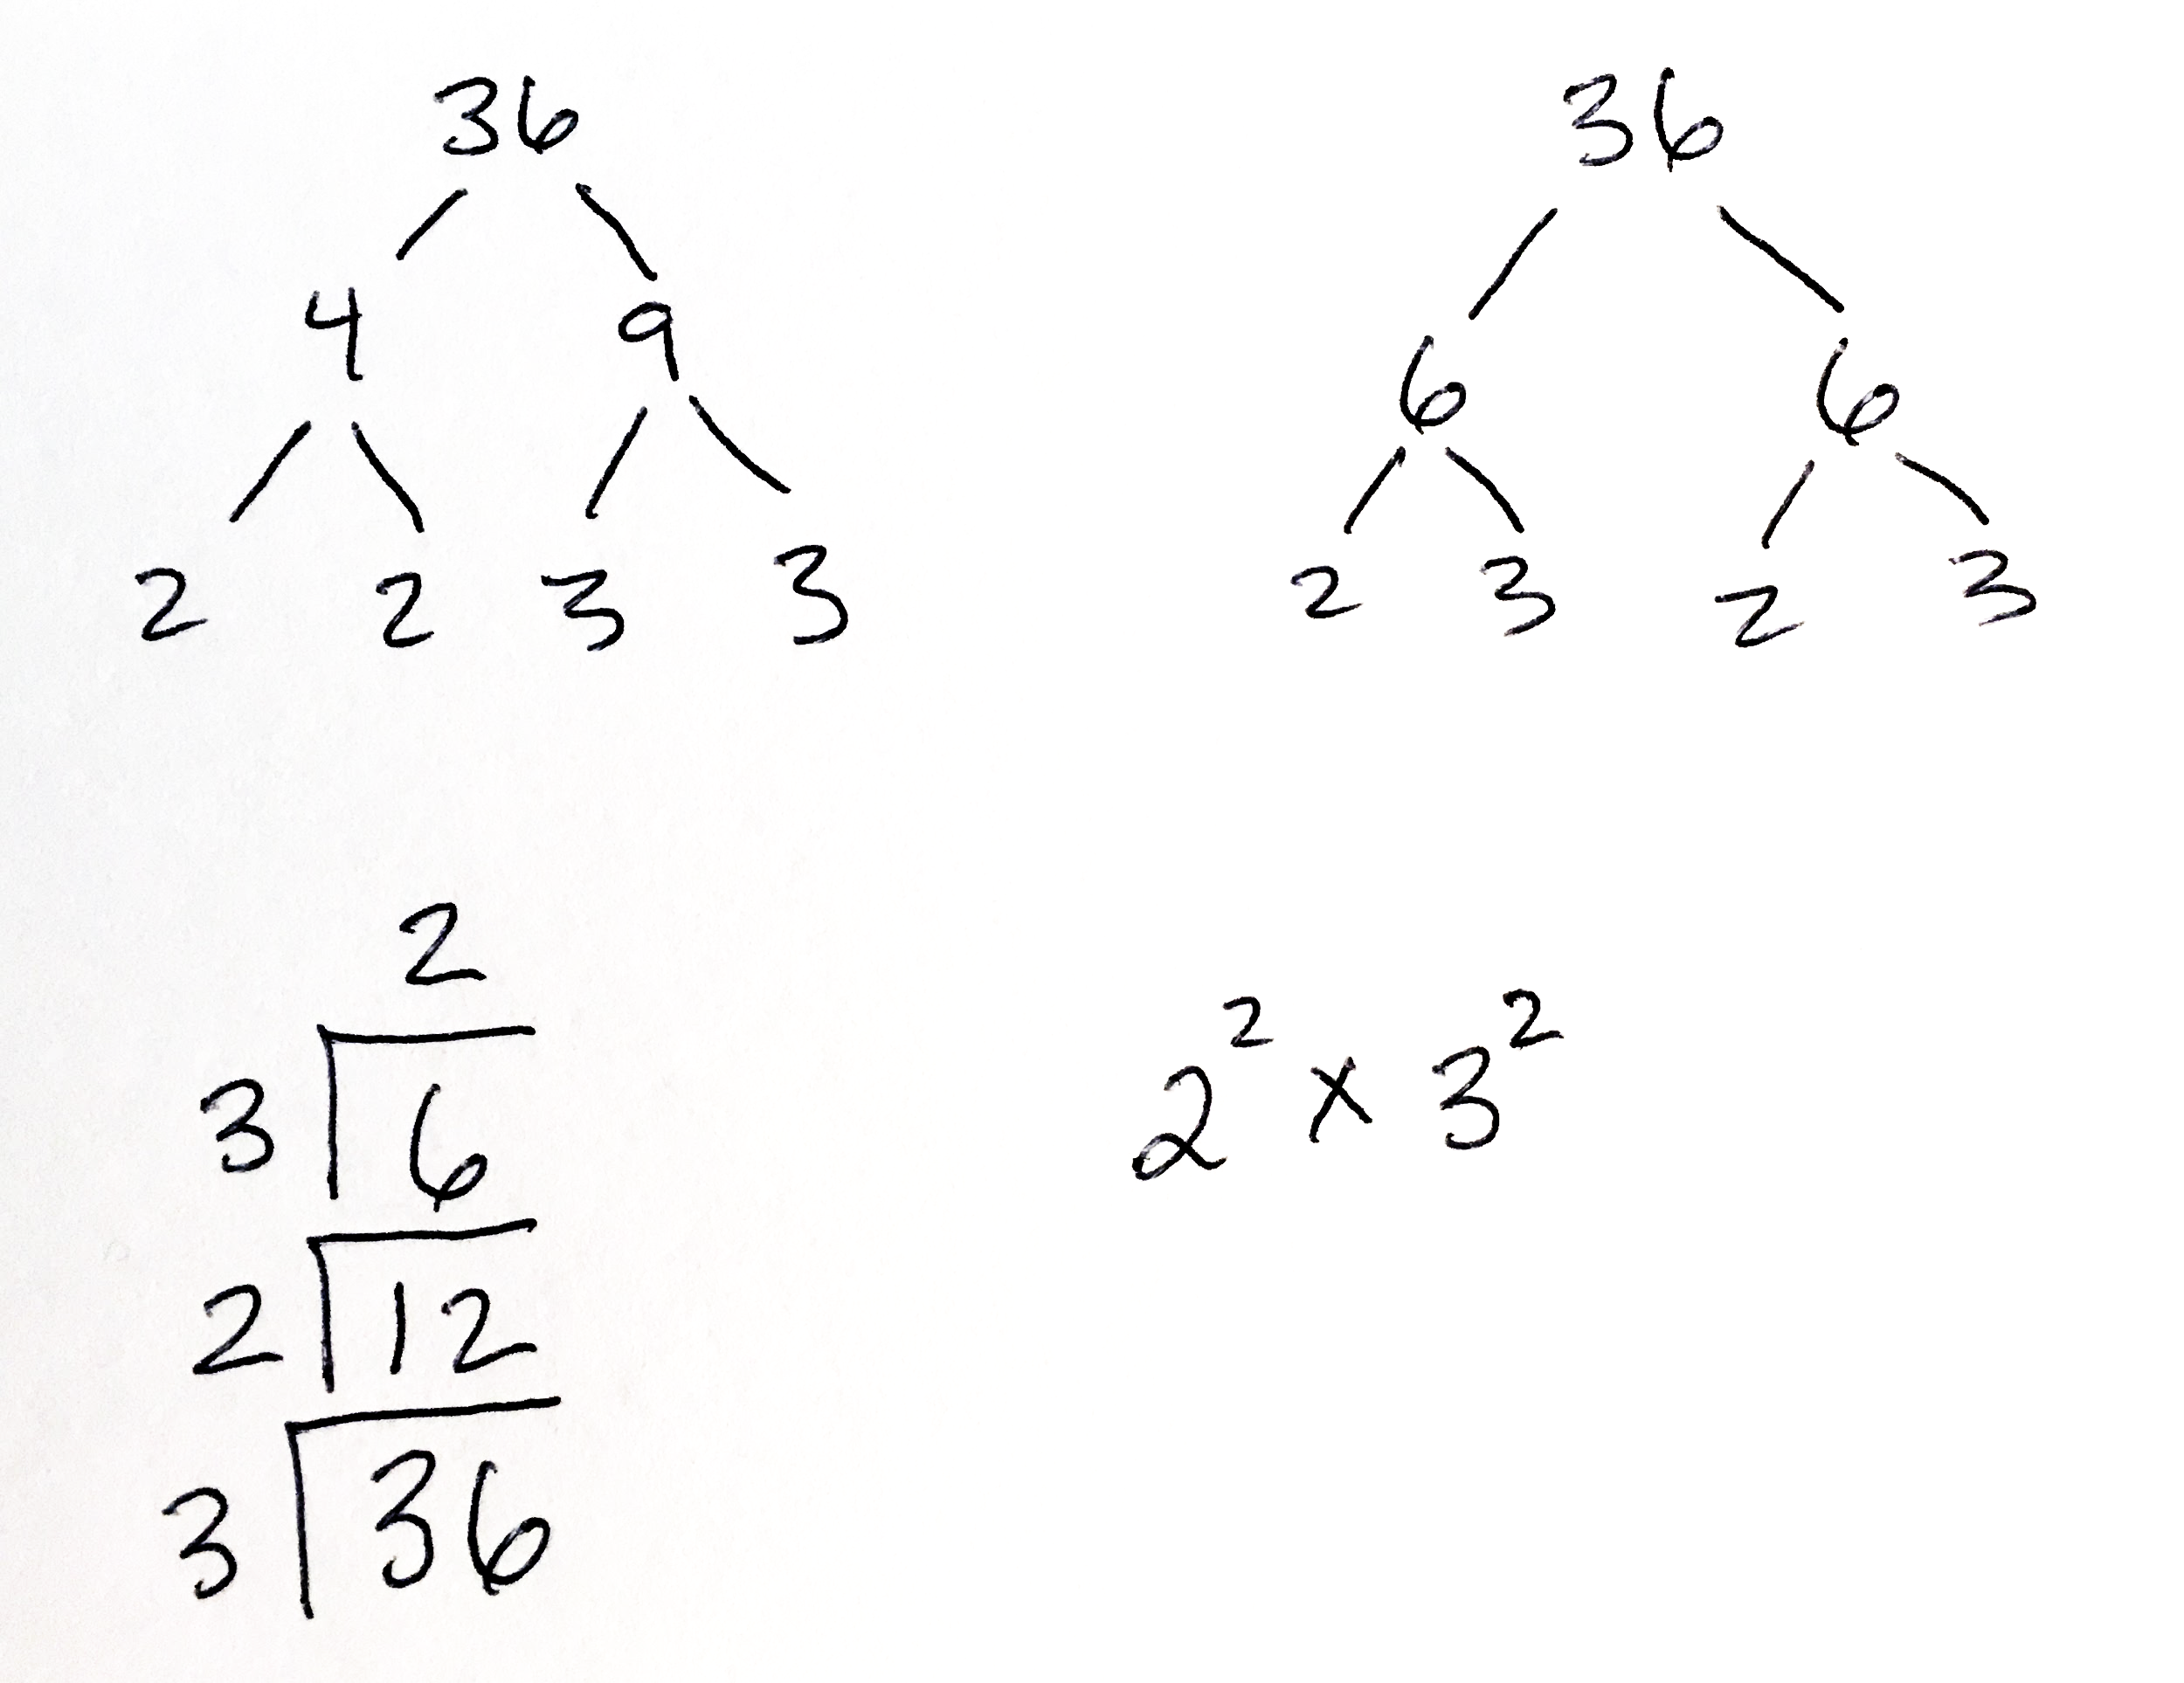 36
4 9
2 2 3 3
36
6 6
2 3 2 3
2
3 6
2 12
3 36
2² x 3²